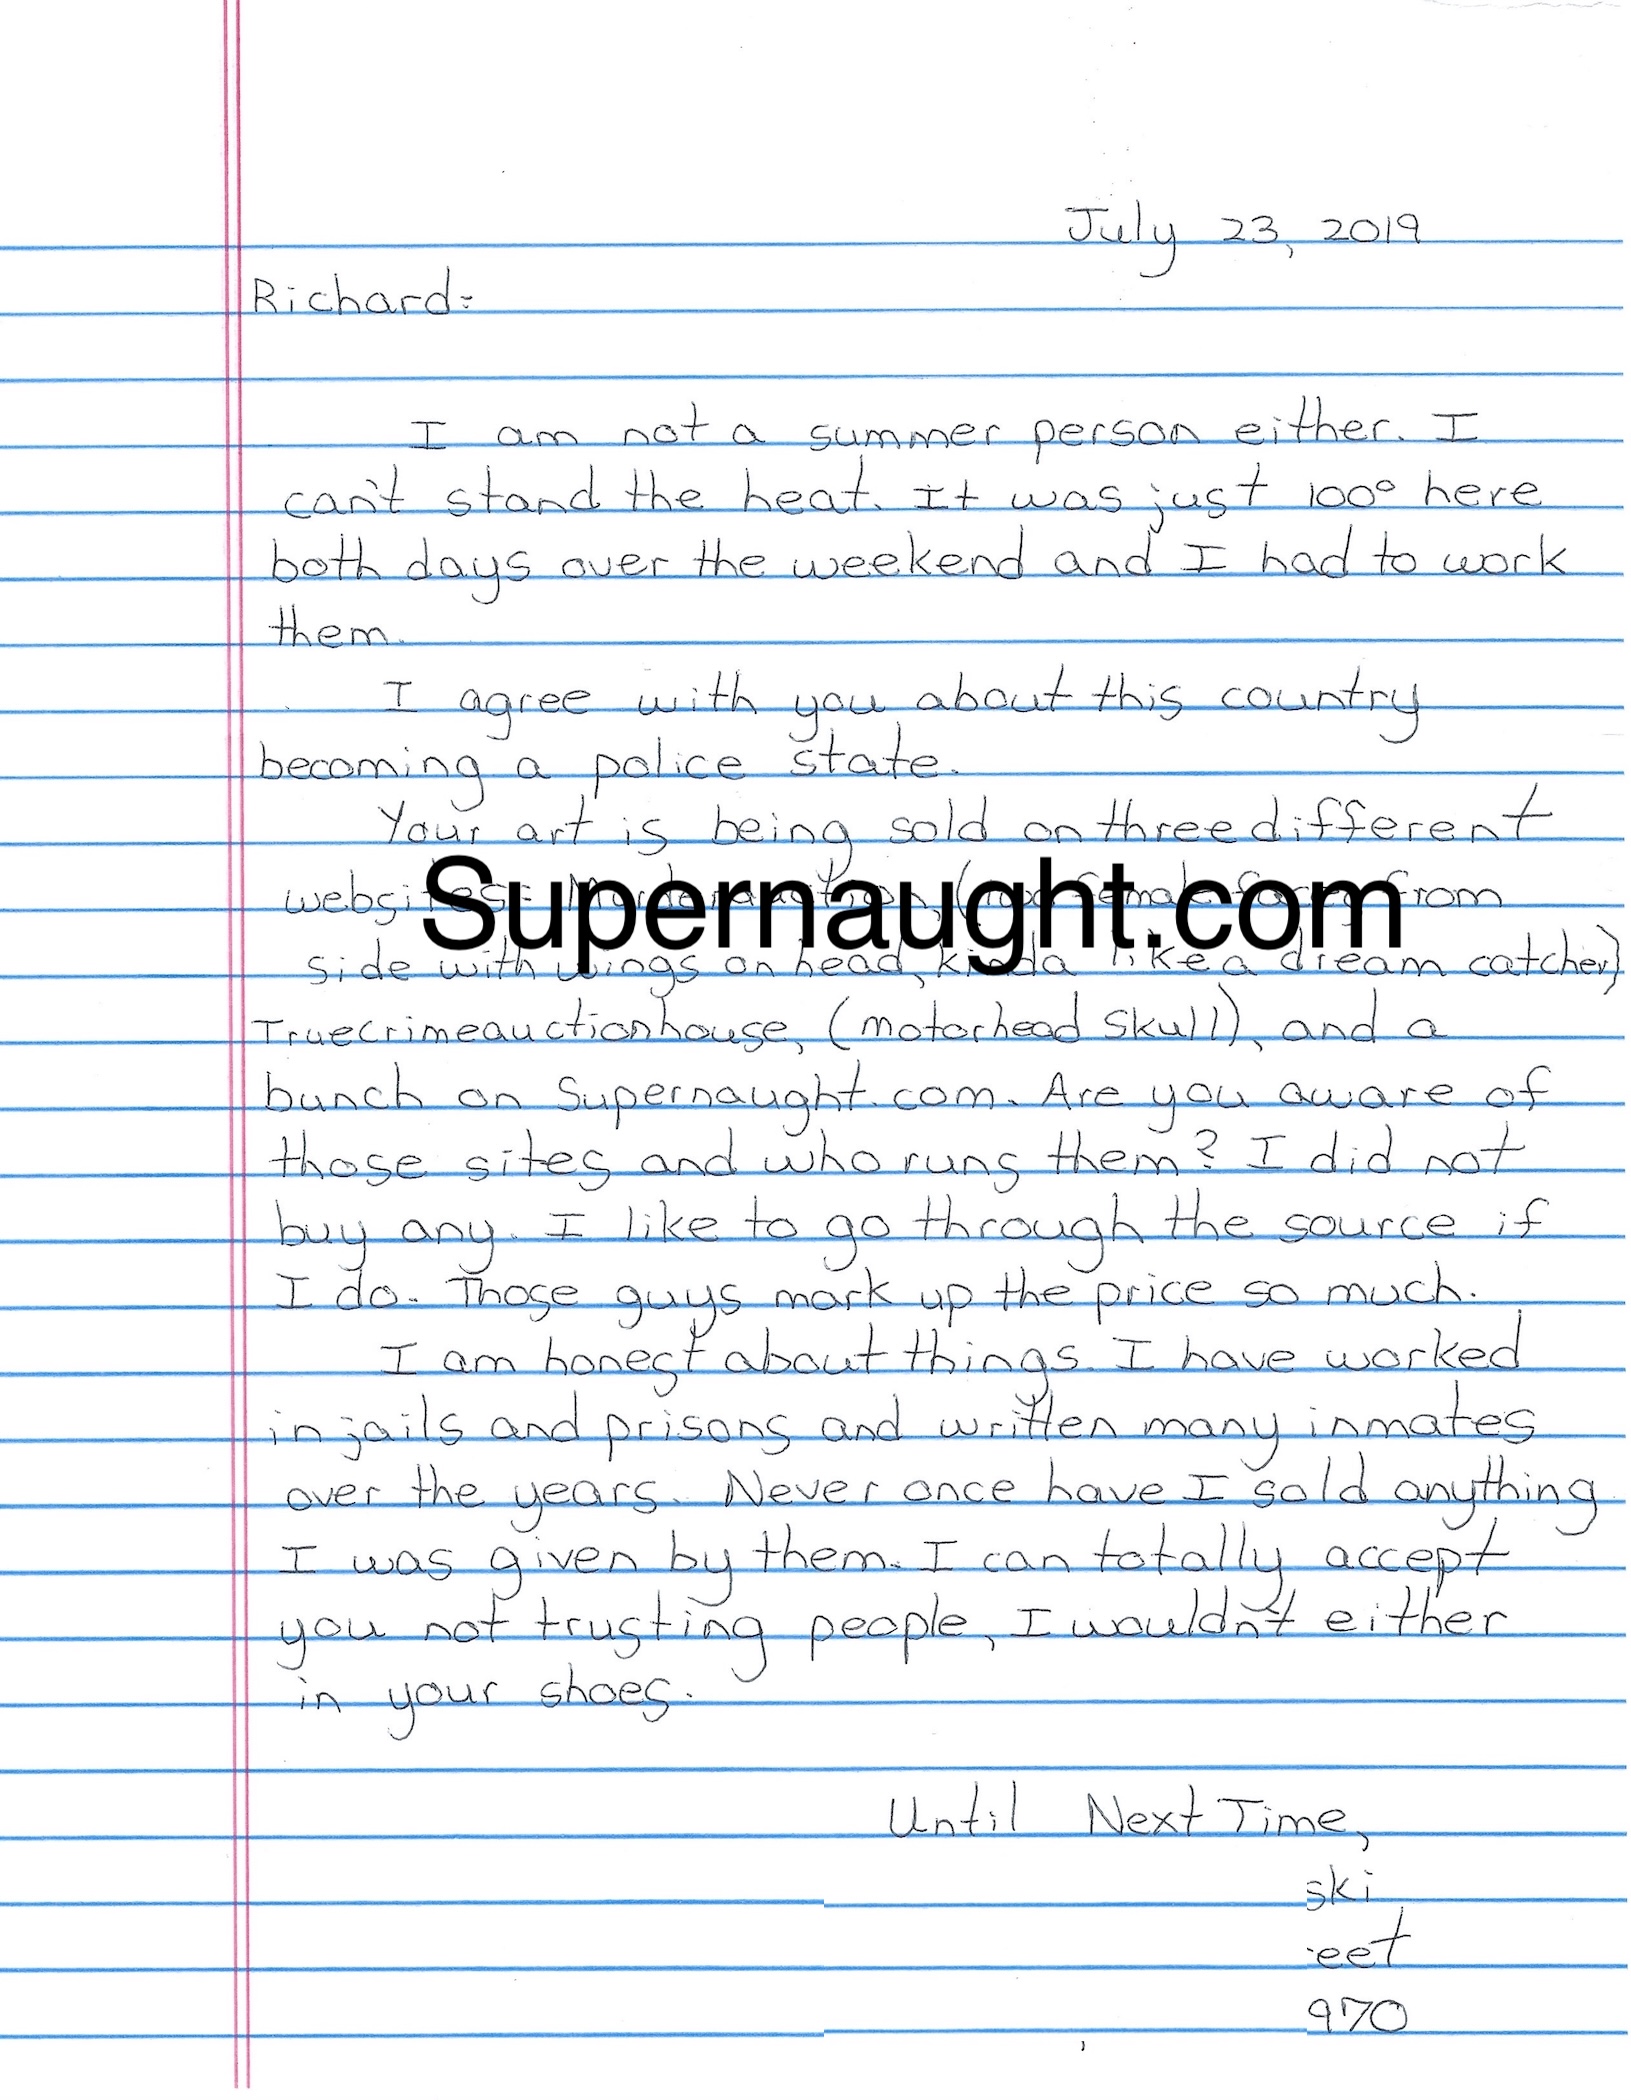 July 23, 2019
Richard:
I am not a summer person either. I
can't stand the heat. It was just 100° here
both days over the weekend and I had to work
them.
I agree with you about this country
becoming a police state.
Your art is being sold on three different
websites: (female from
Supernaught.com
side with wings on head, kinda like a dream catcher)
Truecrimeauctionhouse, (motorhead skull), and a
bunch on Supernaught.com. Are you aware of
those sites and who runs them? I did not
buy any. I like to go through the source if
I do. Those guys mark up the price so much.
I am honest about things. I have worked
in jails and prisons and written many inmates
over the years. Never once have I sold anything
I was given by them. I can totally accept
you not trusting people, I wouldn't either
in your shoes.
Until Next Time,
ski
eet
970